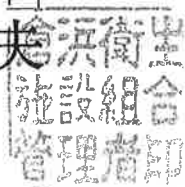 夫
倉浜衛生
施設組合
管理者印